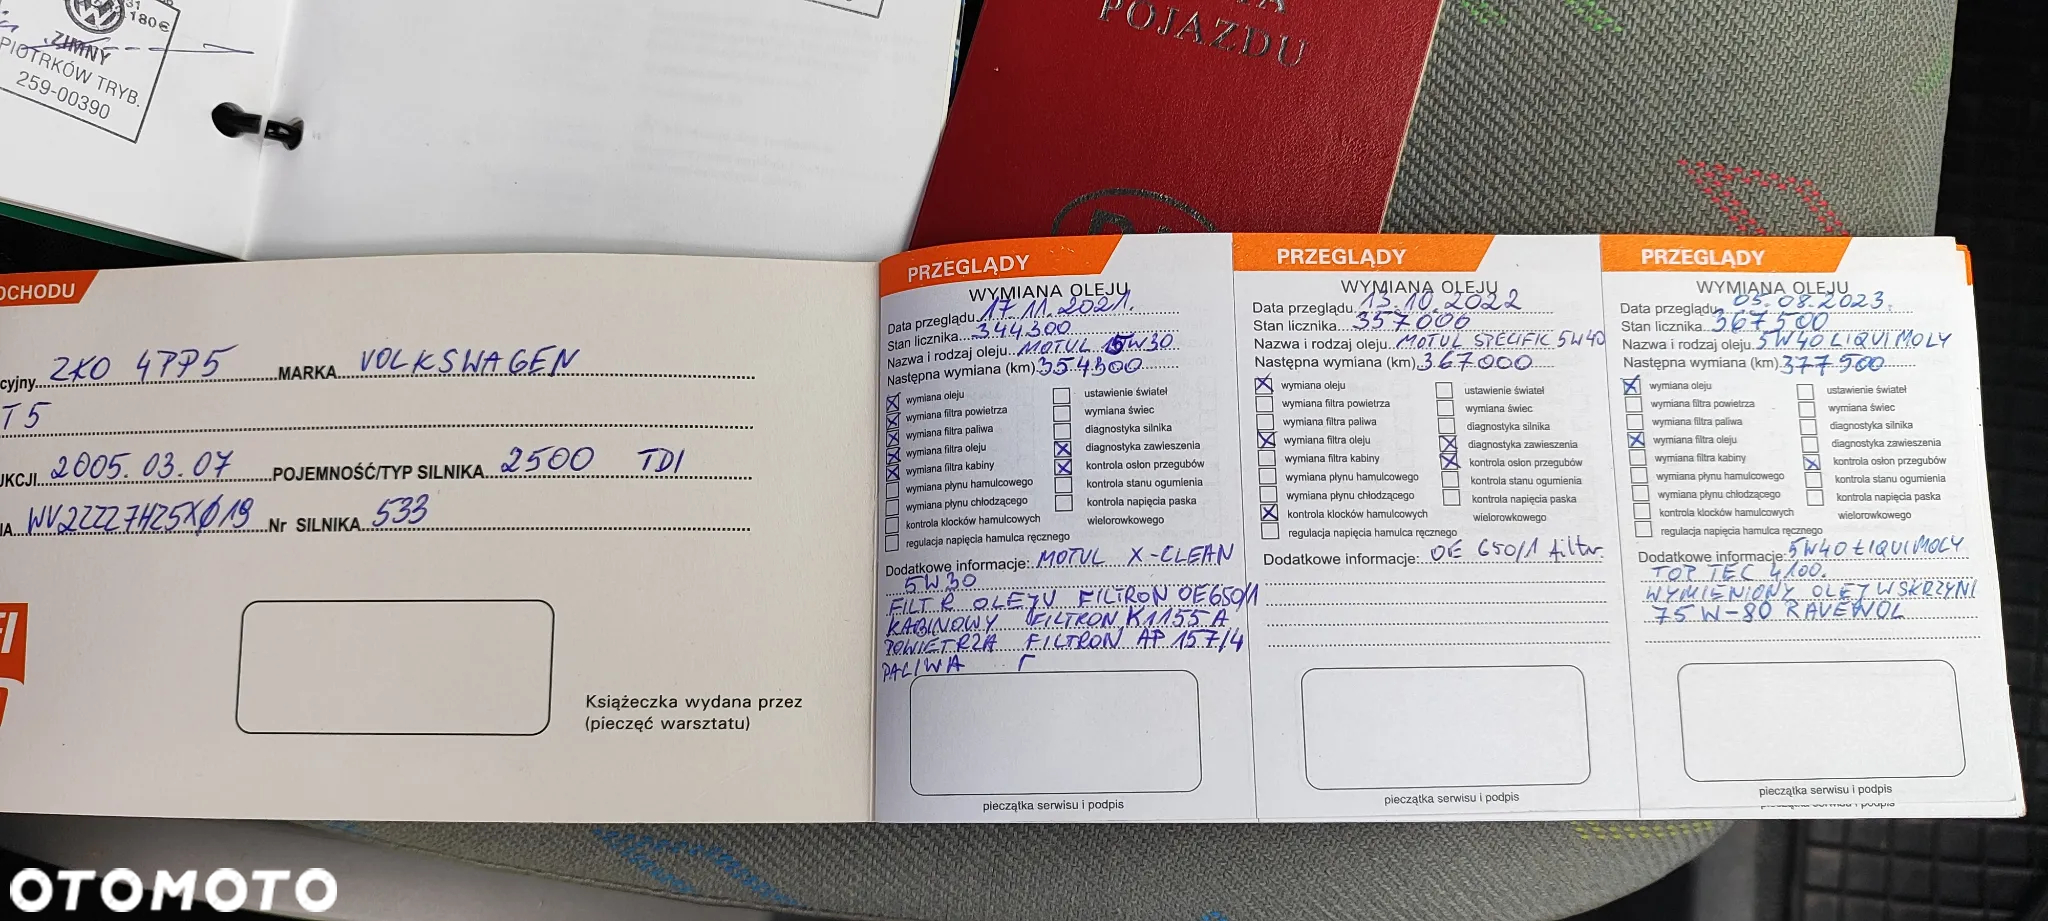 31
180€
ZIMNY
PIOTRKÓW TRYB.
259-00390
POJAZDU
OCHODU
cyjny ZKO 4PP5 MARKA VOLKSWAGEN
T5
KCJI 2005.03.07 POJEMNOŚĆ/TYP SILNIKA 2500 TDI
WV2ZZZ7HZ5X019 Nr SILNIKA 533
Książeczka wydana przez
(pieczęć warsztatu)
PRZEGLĄDY
WYMIANA OLEJU
Data przeglądu 17.11.2021.
Stan licznika 344300
Nazwa i rodzaj oleju MOTUL 5W30
Następna wymiana (km) 354300
wymiana oleju
wymiana filtra powietrza
wymiana filtra paliwa
wymiana filtra oleju
wymiana filtra kabiny
wymiana płynu hamulcowego
wymiana płynu chłodzącego
kontrola klocków hamulcowych
regulacja napięcia hamulca ręcznego
ustawienie świateł
wymiana świec
diagnostyka silnika
diagnostyka zawieszenia
kontrola osłon przegubów
kontrola stanu ogumienia
kontrola napięcia paska
wielorowkowego
Dodatkowe informacje: MOTUL X-CLEAN
5W30
FILTR OLEJU FILTRON OE650/1
KABINOWY FILTRON K1155A
POWIETRZA FILTRON AP 157/4
PALIWA
pieczątka serwisu i podpis
PRZEGLĄDY
WYMIANA OLEJU
Data przeglądu 13.10.2022
Stan licznika 357000
Nazwa i rodzaj oleju MOTUL SPECIFIC 5W40
Następna wymiana (km) 367000
wymiana oleju
wymiana filtra powietrza
wymiana filtra paliwa
wymiana filtra oleju
wymiana filtra kabiny
wymiana płynu hamulcowego
wymiana płynu chłodzącego
kontrola klocków hamulcowych
regulacja napięcia hamulca ręcznego
ustawienie świateł
wymiana świec
diagnostyka silnika
diagnostyka zawieszenia
kontrola osłon przegubów
kontrola stanu ogumienia
kontrola napięcia paska
wielorowkowego
Dodatkowe informacje: OE 650/1 filtr
pieczątka serwisu i podpis
PRZEGLĄDY
WYMIANA OLEJU
Data przeglądu 05.08.2023.
Stan licznika 367500
Nazwa i rodzaj oleju 5W40 LIQUI MOLY
Następna wymiana (km) 377500
wymiana oleju
wymiana filtra powietrza
wymiana filtra paliwa
wymiana filtra oleju
wymiana filtra kabiny
wymiana płynu hamulcowego
wymiana płynu chłodzącego
kontrola klocków hamulcowych
regulacja napięcia hamulca ręcznego
ustawienie świateł
wymiana świec
diagnostyka silnika
diagnostyka zawieszenia
kontrola osłon przegubów
kontrola stanu ogumienia
kontrola napięcia paska
wielorowkowego
Dodatkowe informacje: 5W40 LIQUI MOLY
TOP TEC 4100.
WYMIENIONY OLEJ W SKRZYNI
75W-80 RAVENOL
pieczątka serwisu i podpis
OTOMOTO